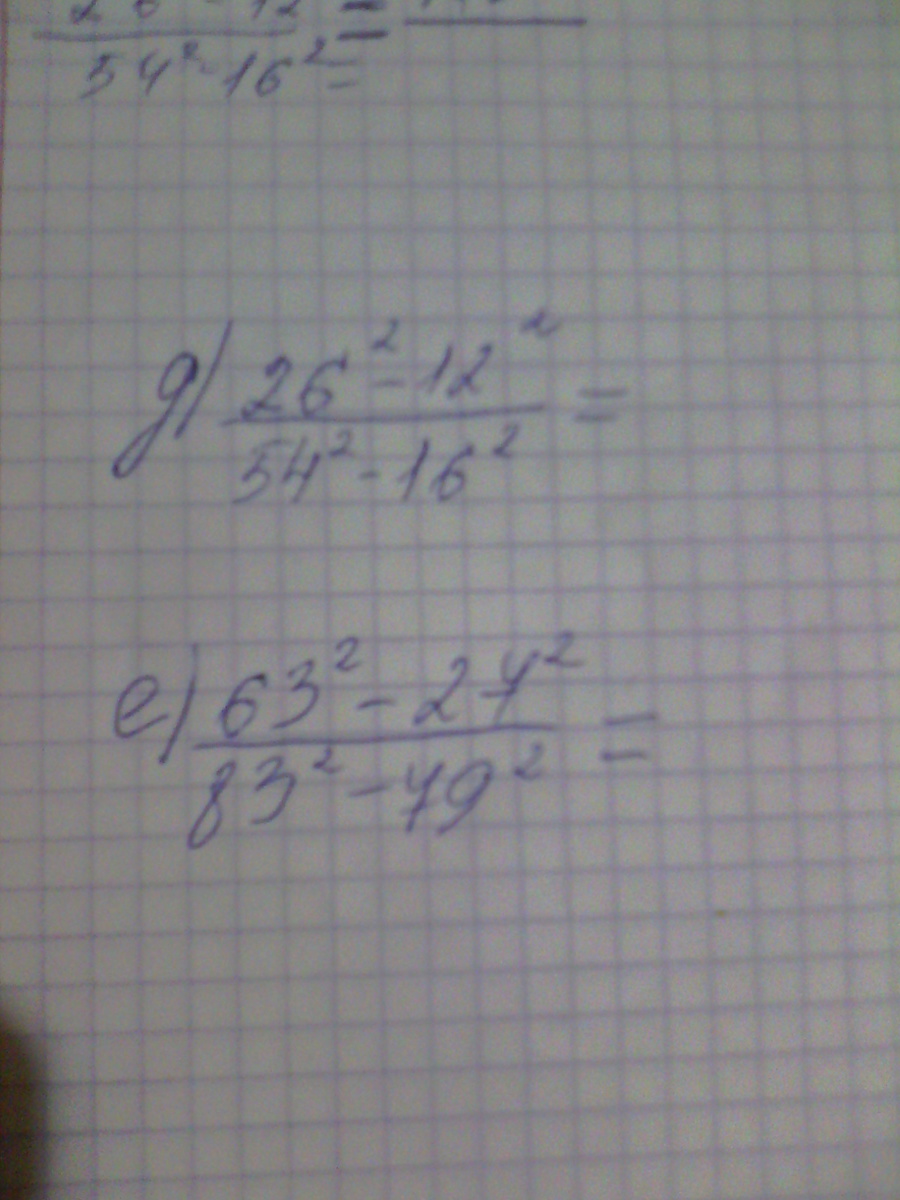 26² - 12² =
54² - 16² =
д) 26² - 12² =
54² - 16²
е) 63² - 27² =
83² - 79²